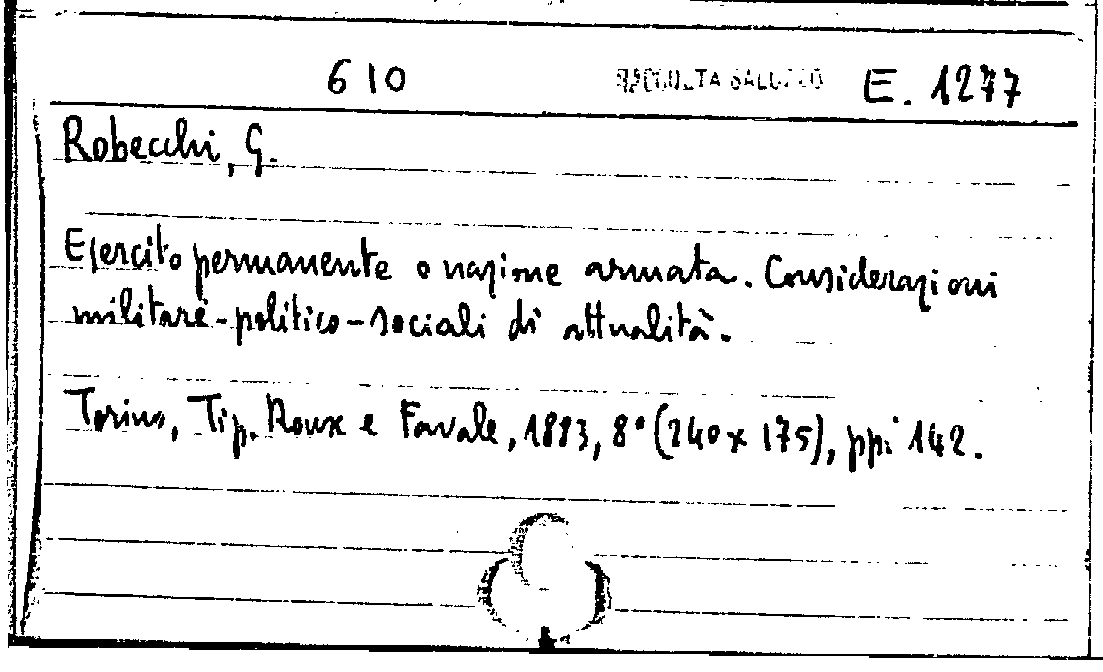 610 RACCOLTA SALUZZO E. 1277
Robecchi, G.
Esercito permanente o nazione armata. Considerazioni
militare-politico-sociali di attualità.
Torino, Tip. Roux e Favale, 1883, 8° (240 x 175), pp. 142.